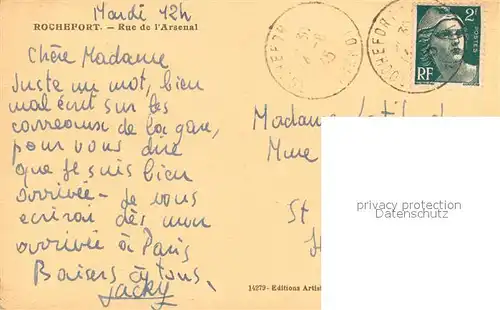 Mardi 12h
ROCHEFORT. – Rue de l'Arsenal
Chère Madame
Juste un mot, bien
mal écrit sur les
carreaux de la gare,
pour vous dire
que je suis bien
arrivée – je vous
ecrirai dès mon
arrivée à Paris
Baisers à tous,
Jacky
ROCHEFORT
2F
POSTES
RF
Madame
Mme
St
privacy protection
Datenschutz
14279 - Editions Artis